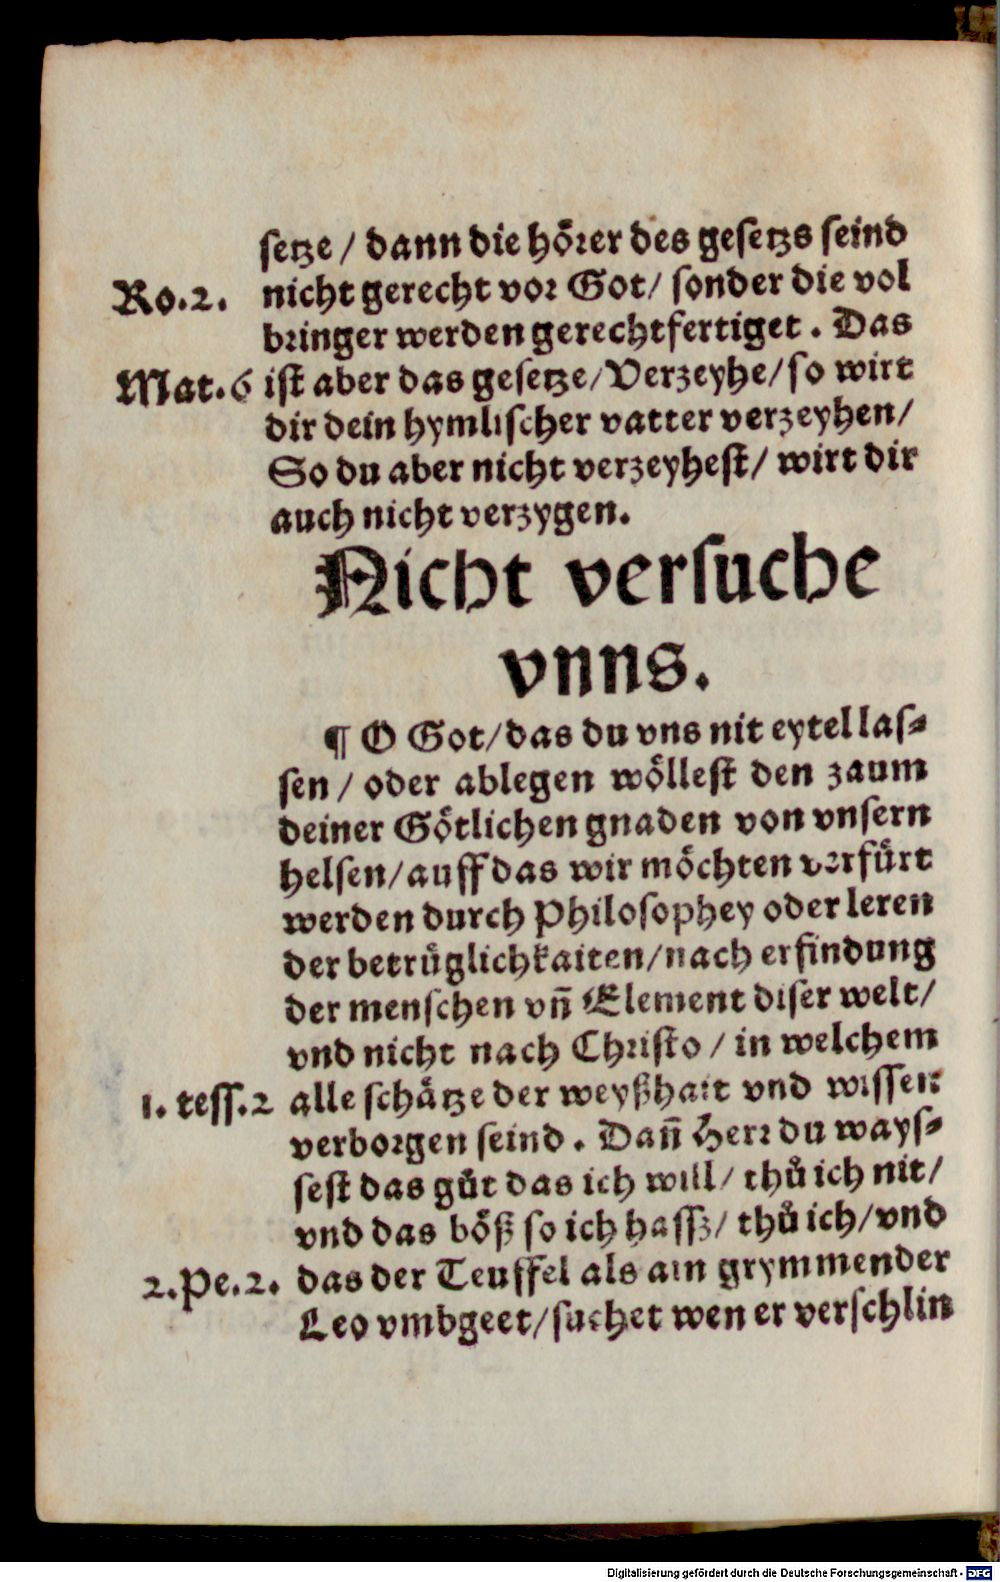 setze / dann die hörer des gesetzs seind
Ro.2. nicht gerecht vor Got/ sonder die vol
bringer werden gerechtfertiget . Das
Mat.6 ist aber das gesetze/Verzeyhe/so wirt
dir dein hymlischer vatter verzeyhen/
So du aber nicht verzeyhest/ wirt dir
auch nicht verzygen.
Nicht versuche
vnns.
¶ O Got/das du vns nit eytel las⸗
sen / oder ablegen wöllest den zaum
deiner Götlichen gnaden von vnsern
helsen/auff das wir möchten verfürt
werden durch Philosophey oder leren
der betrüglichkaiten/nach erfindung
der menschen vñ Element diser welt/
vnd nicht nach Christo / in welchem
1. tess.2 alle schätze der weyßhait vnd wissen
verborgen seind . Dañ Herr du ways⸗
sest das gůt das ich will/ thů ich nit/
vnd das böß so ich hassz/ thů ich/vnd
2.Pe.2. das der Teuffel als ain grymmender
Leo vmbgeet/suchet wen er verschlin
Digitalisierung gefördert durch die Deutsche Forschungsgemeinschaft - DFG